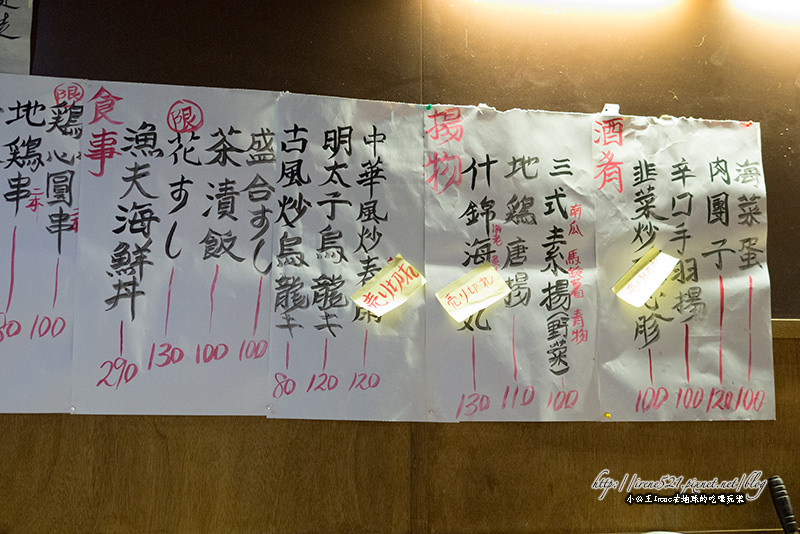 酒肴
海菜蛋 100
肉團子 120
辛口手羽揚 100
韭菜炒 心胗 100
揚物
三式素揚(野菜) 100
南瓜 馬鈴薯 青物
地鶏唐揚 110
什錦海 丸 130
売り切れ
中華風炒 120
売り切れ
明太子烏龍 120
古風炒烏龍 80
食事
盛合すし 100
茶漬飯 100
限 花すし 130
漁夫海鮮丼 290
限 鶏心圓串 100
地鶏串
http://irene521.pixnet.net/blog
小公主Irene在地球的吃喝玩樂